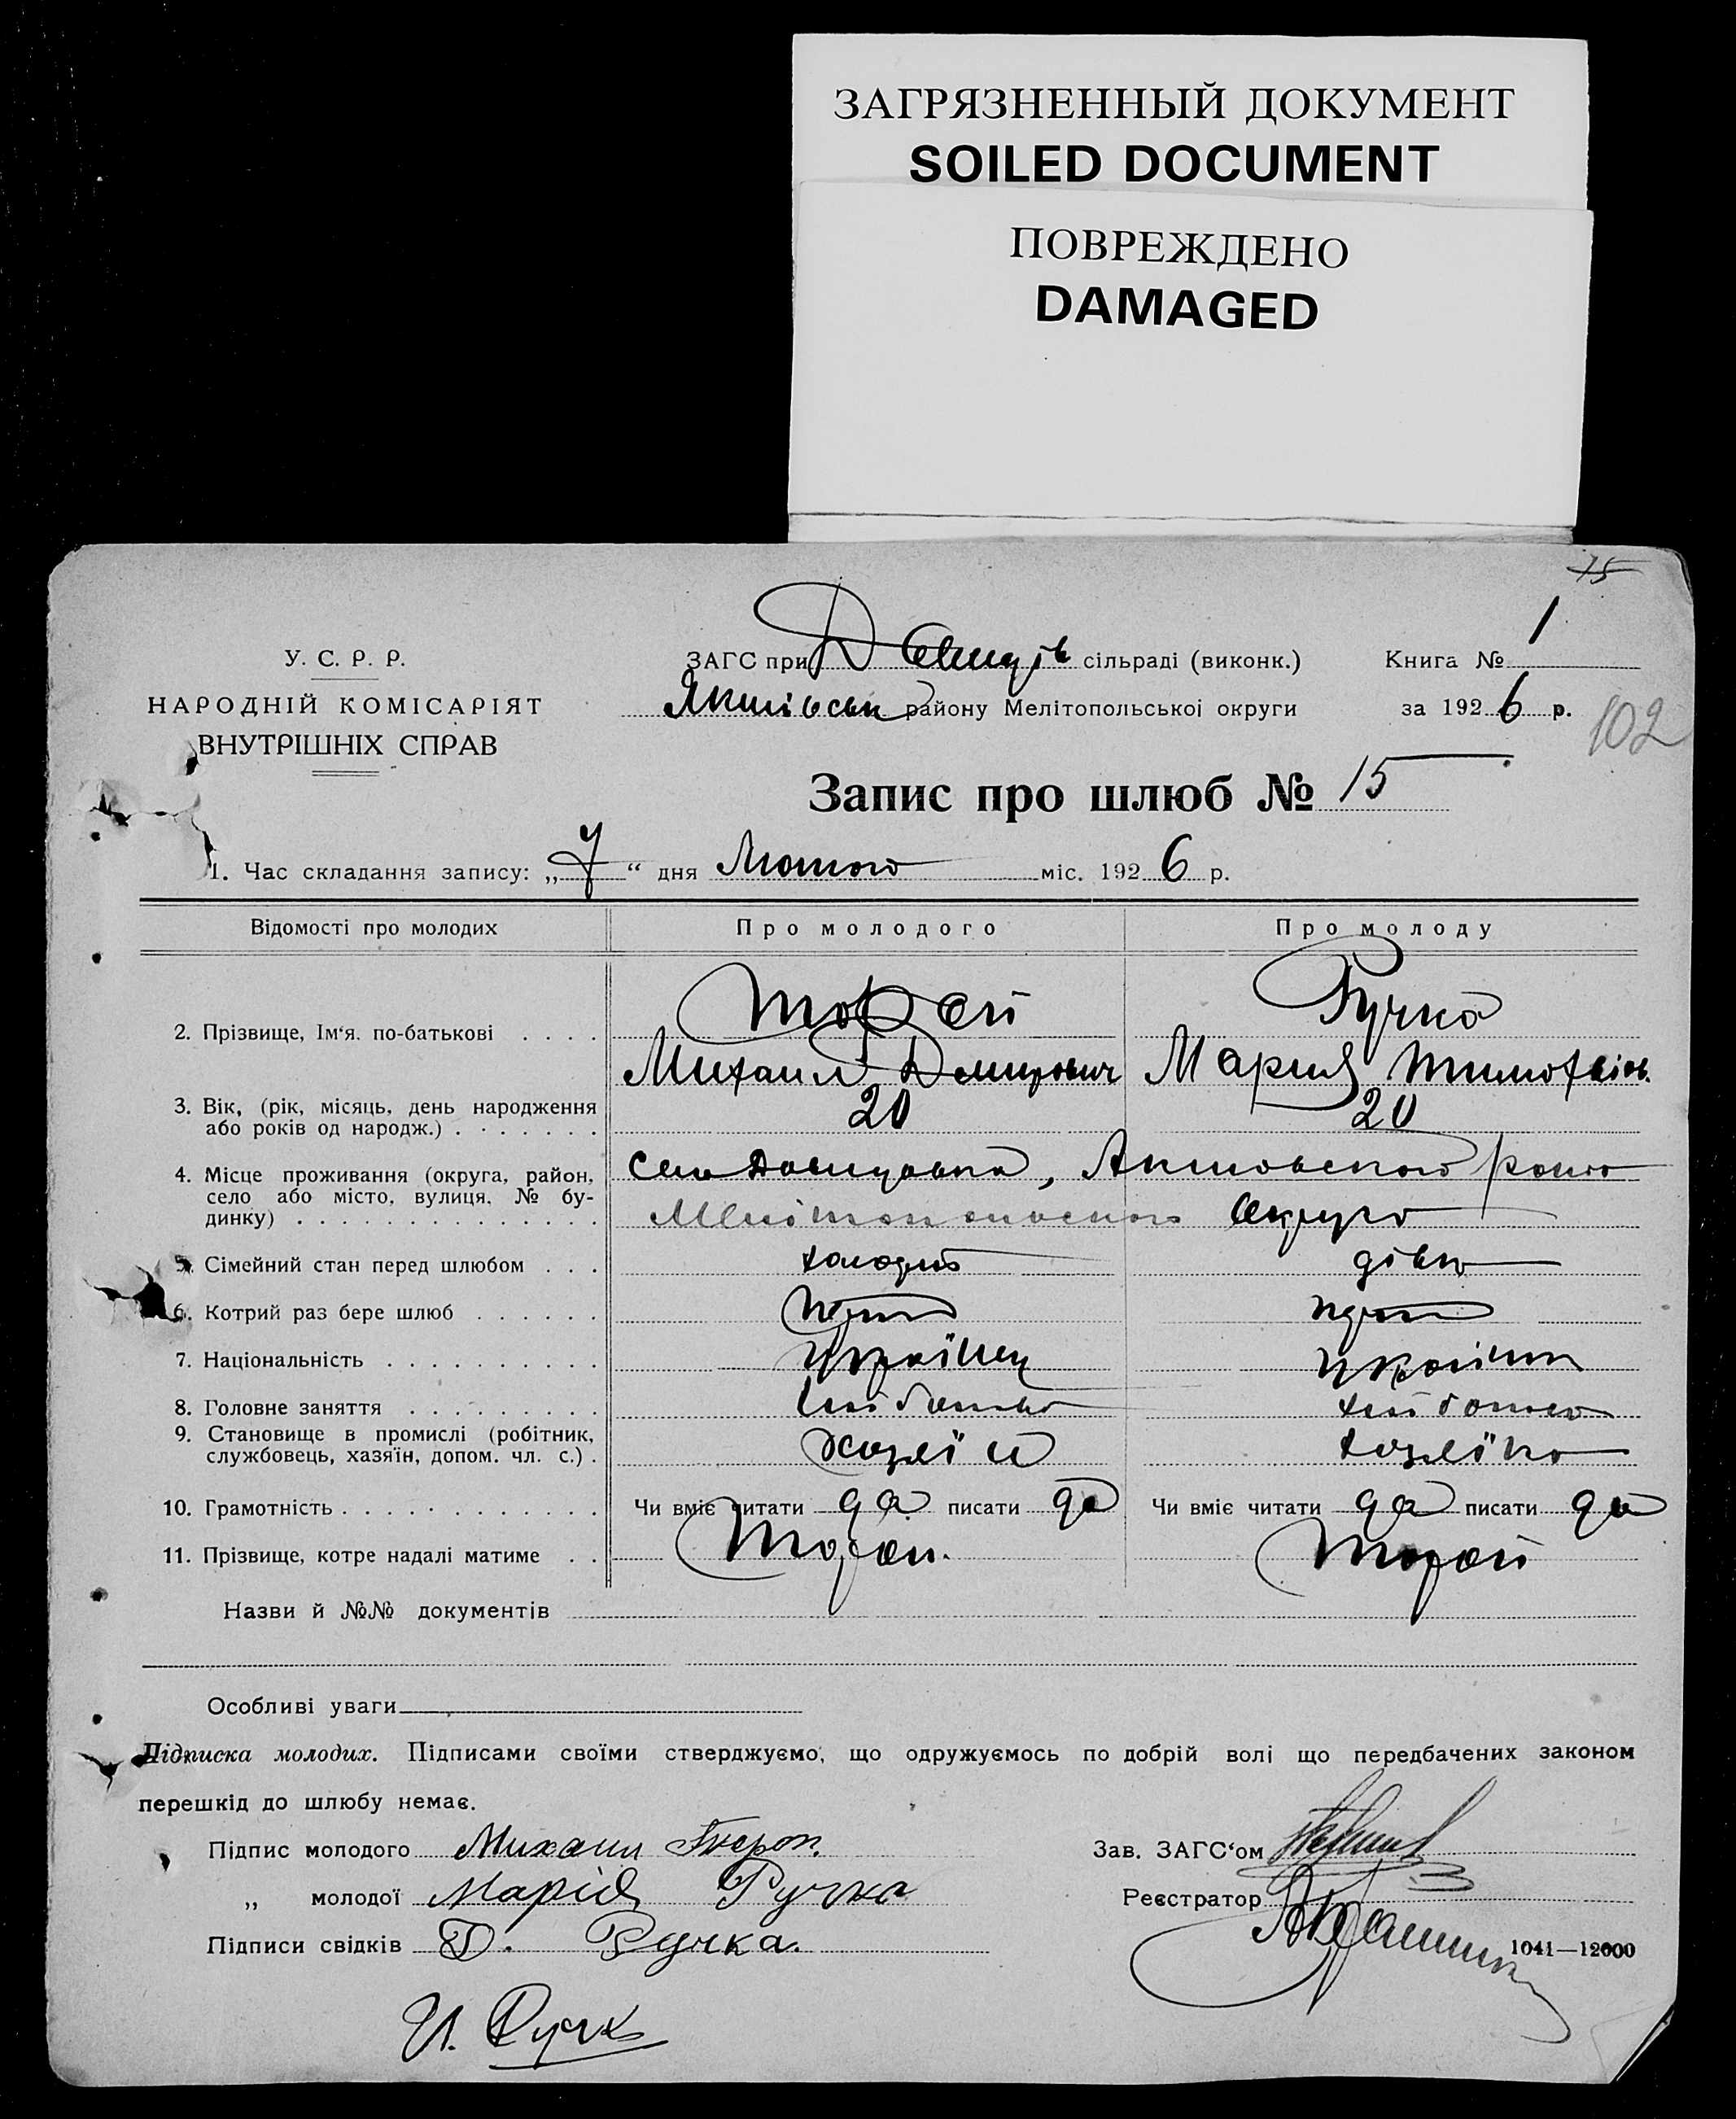 ЗАГРЯЗНЕННЫЙ ДОКУМЕНТ
SOILED DOCUMENT
ПОВРЕЖДЕНО
DAMAGED
15
У. С. Р. Р.
НАРОДНІЙ КОМІСАРІЯТ
ВНУТРІШНІХ СПРАВ
ЗАГС при Давидів сільраді (виконк.)
Книга № 1
Якимівськ району Мелітопольської округи
за 1926 р.
102
Запис про шлюб № 15
1. Час складання запису: „7“ дня Лютого міс. 1926 р.
Відомості про молодих Про молодого Про молоду
2. Прізвище, Ім‘я. по-батькові . . . .
Ручка
Михаил Мария
3. Вік, (рік, місяць, день народження
або років од народж.) . . . . . . . 20 20
4. Місце проживання (округа, район,
село або місто, вулиця, № бу-
динку) . . . . . . . . . . . . . .
село Давидовка, Акимовського
округи
5. Сімейний стан перед шлюбом . . . дівка
6. Котрий раз бере шлюб . . . . . .
7. Національність . . . . . . . . . . Українец Українка
8. Головне заняття . . . . . . . . .
9. Становище в промислі (робітник,
службовець, хазяїн, допом. чл. с.) . Хозяїн хозяїка
10. Грамотність . . . . . . . . . . . . Чи вміє читати да писати да Чи вміє читати да писати да
11. Прізвище, котре надалі матиме . .
Назви й №№ документів
Особливі уваги
Підписка молодих. Підписами своїми стверджуємо, що одружуємось по добрій волі що передбачених законом
перешкід до шлюбу немає.
Підпис молодого Михаил
Зав. ЗАГС‘ом
„ молодої Марія Ручка
Реєстратор
Підписи свідків Д. Ручка.
1041—12000
И. Ручк